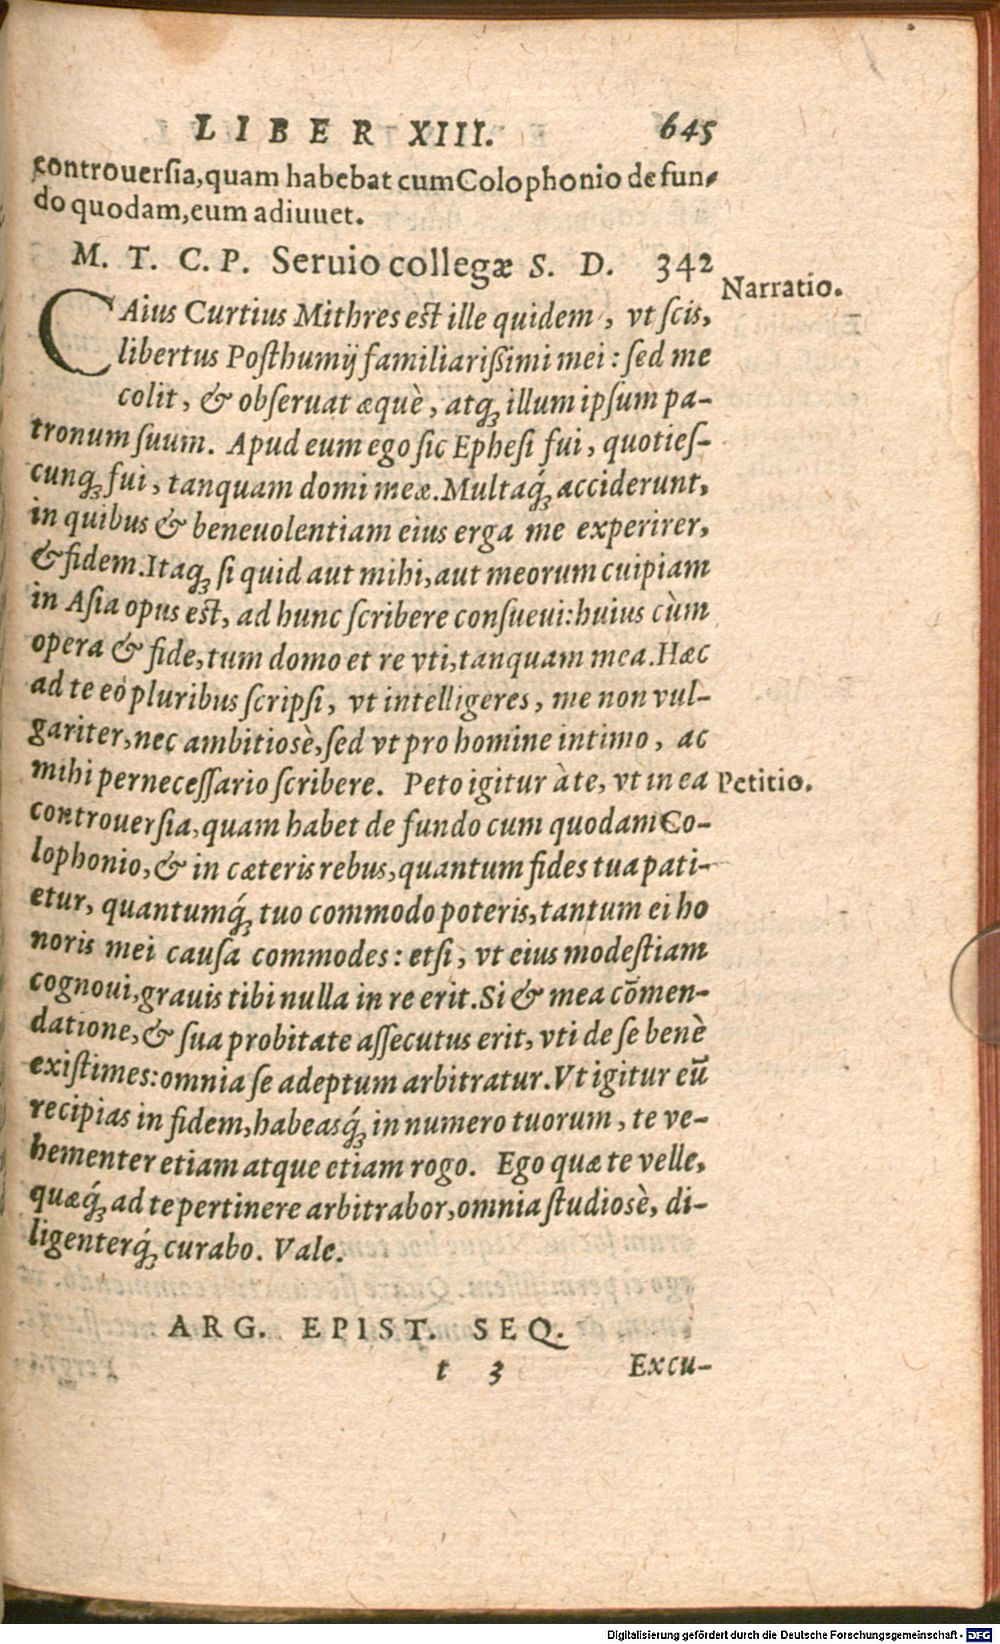 LIBER XIII. 645
controuersia,quam habebat cum Colophonio de fun-
do quodam,eum adiuuet.
M. T. C. P. Seruio collegæ S. D. 342
Narratio.
CAius Curtius Mithres est ille quidem, vt scis,
libertus Posthumij familiarißimi mei: sed me
colit, & obseruat æquè, atq; illum ipsum pa-
tronum suum. Apud eum ego sic Ephesi fui, quoties-
cunq; fui, tanquam domi meæ. Multaq́; acciderunt,
in quibus & beneuolentiam eius erga me experirer,
& fidem. Itaq; si quid aut mihi, aut meorum cuipiam
in Asia opus est, ad hunc scribere consueui: huius cùm
opera & fide, tum domo et re vti, tanquam mea. Hæc
ad te eò pluribus scripsi, vt intelligeres, me non vul-
gariter, nec ambitiosè, sed vt pro homine intimo, ac
mihi pernecessario scribere. Peto igitur à te, vt in ea
Petitio.
controuersia, quam habet de fundo cum quodam Co-
lophonio, & in cæteris rebus, quantum fides tua pati-
etur, quantumq́; tuo commodo poteris, tantum ei ho
noris mei causa commodes: etsi, vt eius modestiam
cognoui, grauis tibi nulla in re erit. Si & mea cōmen-
datione, & sua probitate assecutus erit, vti de se benè
existimes: omnia se adeptum arbitratur. Vt igitur eū
recipias in fidem, habeasq́; in numero tuorum, te ve-
hementer etiam atque etiam rogo. Ego quæ te velle,
quæq́; ad te pertinere arbitrabor, omnia studiosè, di-
ligenterq́; curabo. Vale.
ARG. EPIST. SEQ.
t 3 Excu-
Digitalisierung gefördert durch die Deutsche Forschungsgemeinschaft - DFG